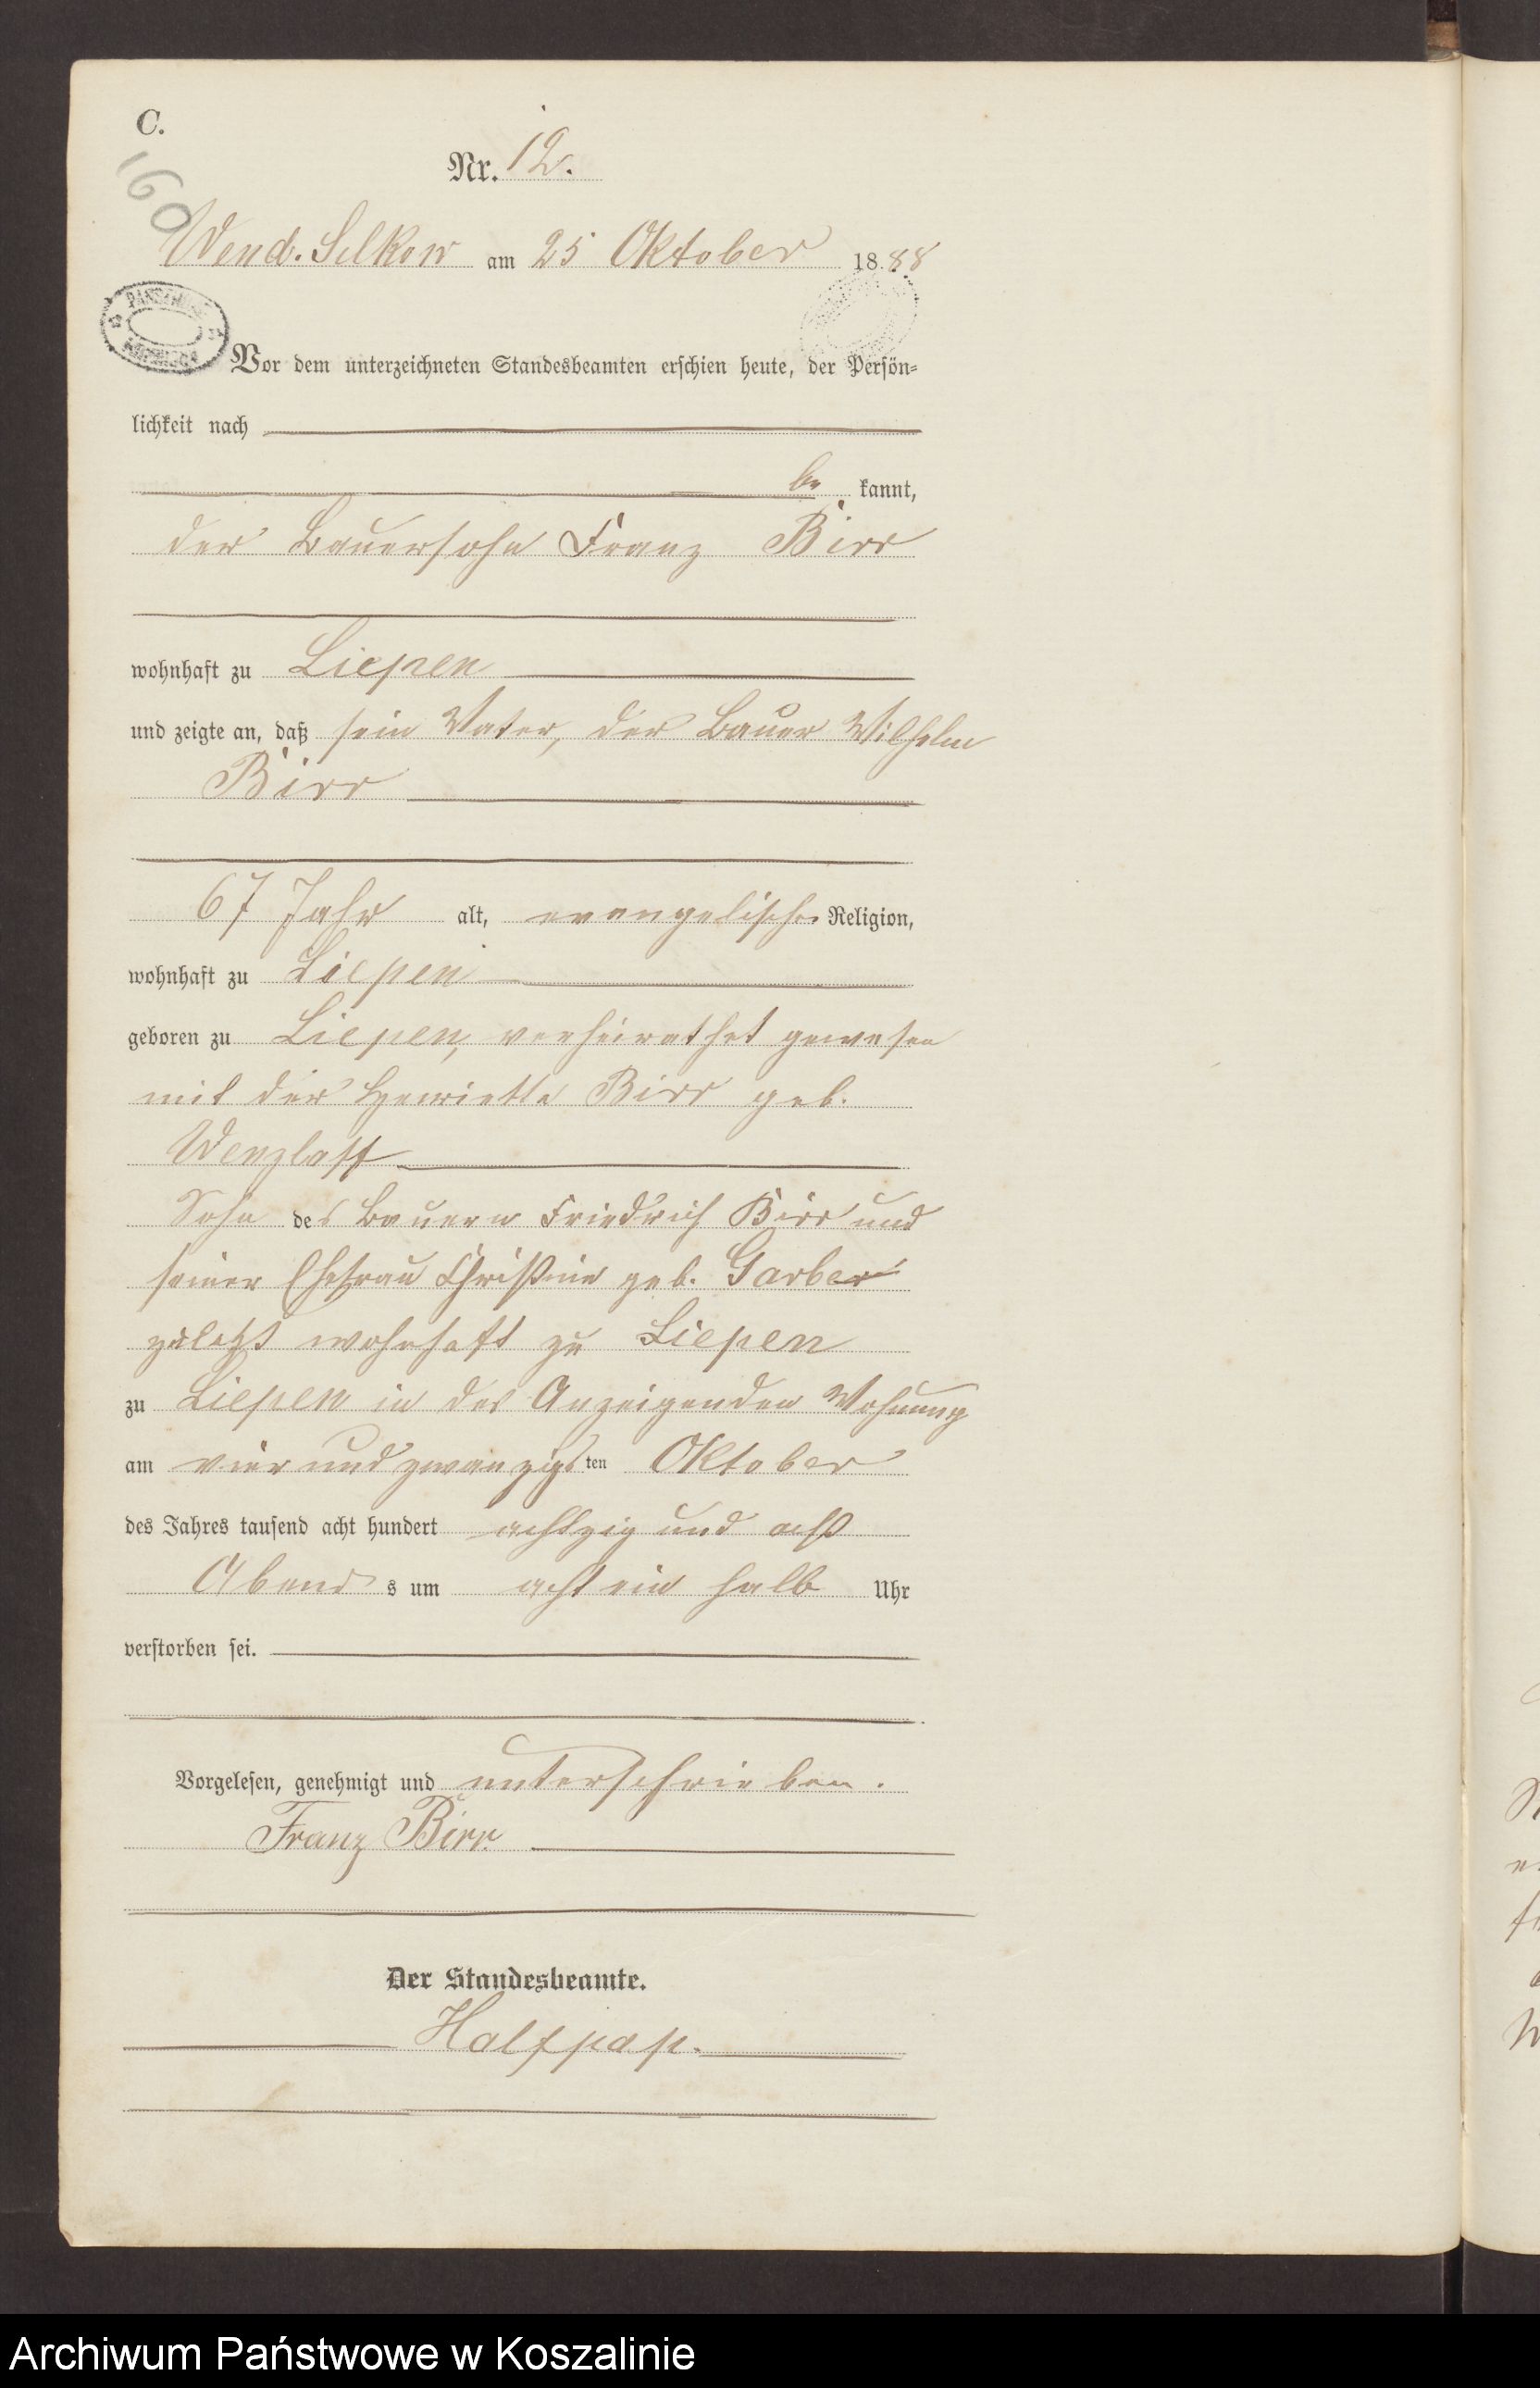 C.
160
Nr. 12.
Wend. Silkow am 25 Oktober 1888
Vor dem unterzeichneten Standesbeamten erschien heute, der Persön-
lichkeit nach
be kannt,
der Bauersohn Franz Birr
wohnhaft zu Liepen
und zeigte an, daß sein Vater, der Bauer Wilhelm
Birr
67 Jahr alt, evangelischer Religion,
wohnhaft zu Liepen
geboren zu Liepen, verheirathet gewesen
mit der Henriette Birr geb.
Wenzlaff
Sohn des Bauern Friedrich Birr und
seiner Ehefrau Christine geb. Garber
zuletzt wohnhaft zu Liepen
zu Liepen in des Anzeigenden Wohnung
am vier und zwanzigsten Oktober
des Jahres tausend acht hundert achtzig und acht
Abends um acht ein halb Uhr
verstorben sei.
Vorgelesen, genehmigt und unterschrieben.
Franz Birr
Der Standesbeamte.
Halfpap.
Archiwum Państwowe w Koszalinie